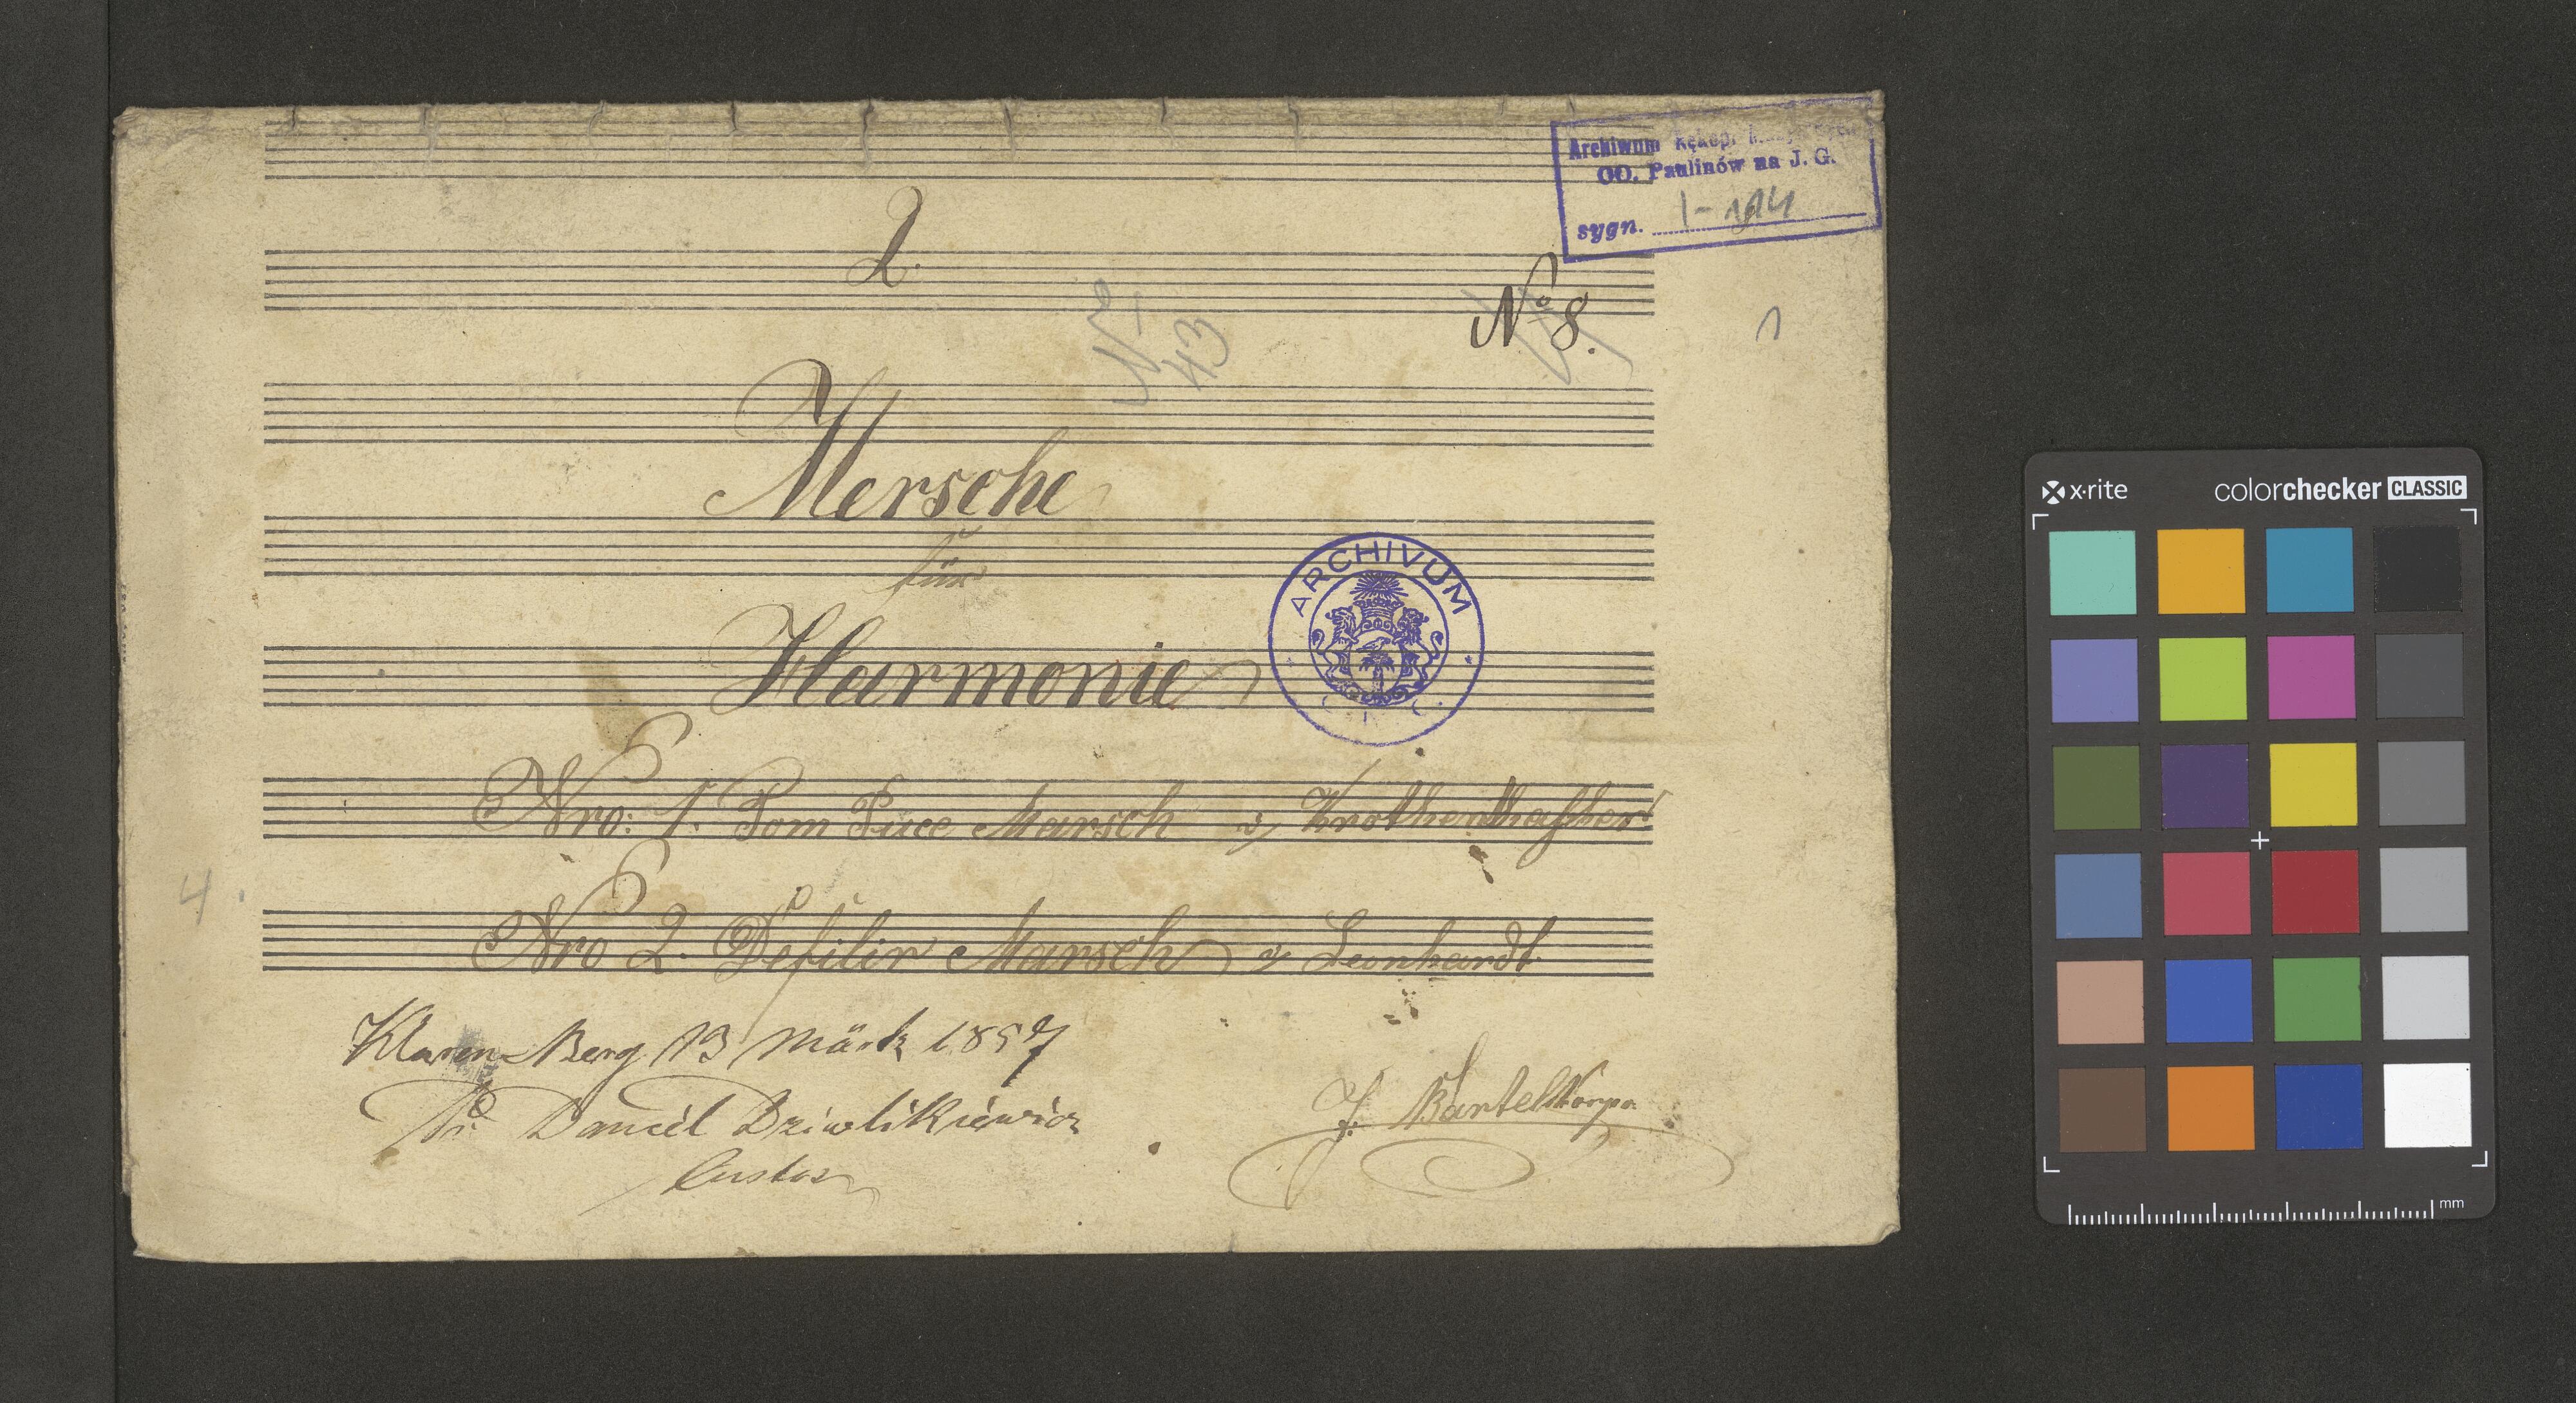 Archiwum Rękop.
OO. Paulinów na J. G.
sygn. I-194
2.
No 8.
1
No 43
Mersche
für
Harmonie
ARCHIVUM
Nro: 1. Tom Puce Marsch v
4
Nro 2. Defilir Marsch v Leonhardt.
Klaren-Berg 13 März 1857
Daniel
Custos
J. Bartel
x·rite
colorchecker CLASSIC
mm